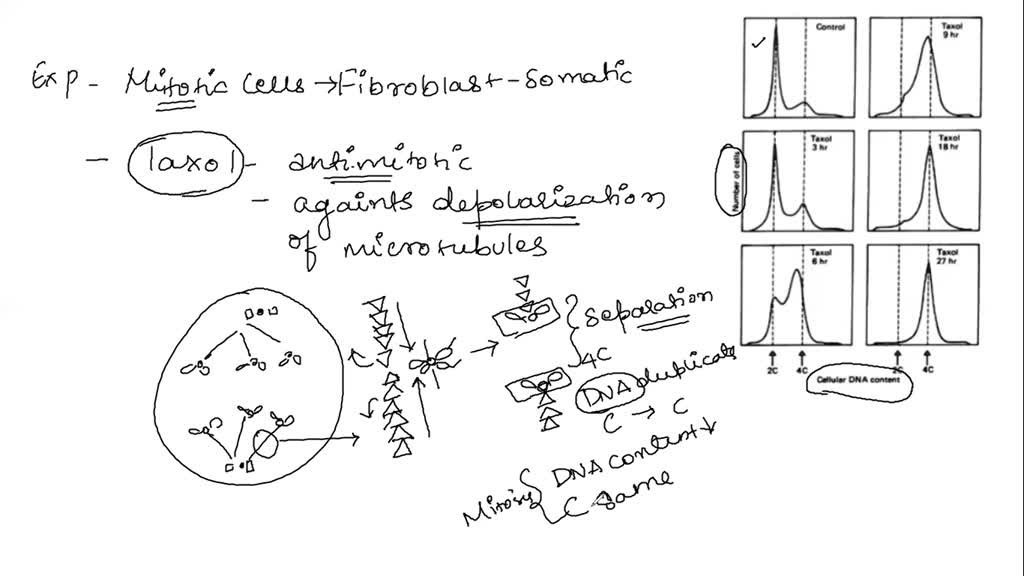 Exp - Mitotic cells → Fibroblast - Somatic
- Taxol - antimitotic
- againts depolarization
of microtubules
separation
4C
DNA duplicate
C → C
Mitosis { DNA content ↓
C same
Control
Taxol
9 hr
Taxol
3 hr
Taxol
18 hr
Taxol
6 hr
Taxol
27 hr
Number of cells
2C 4C 2C 4C
Cellular DNA content